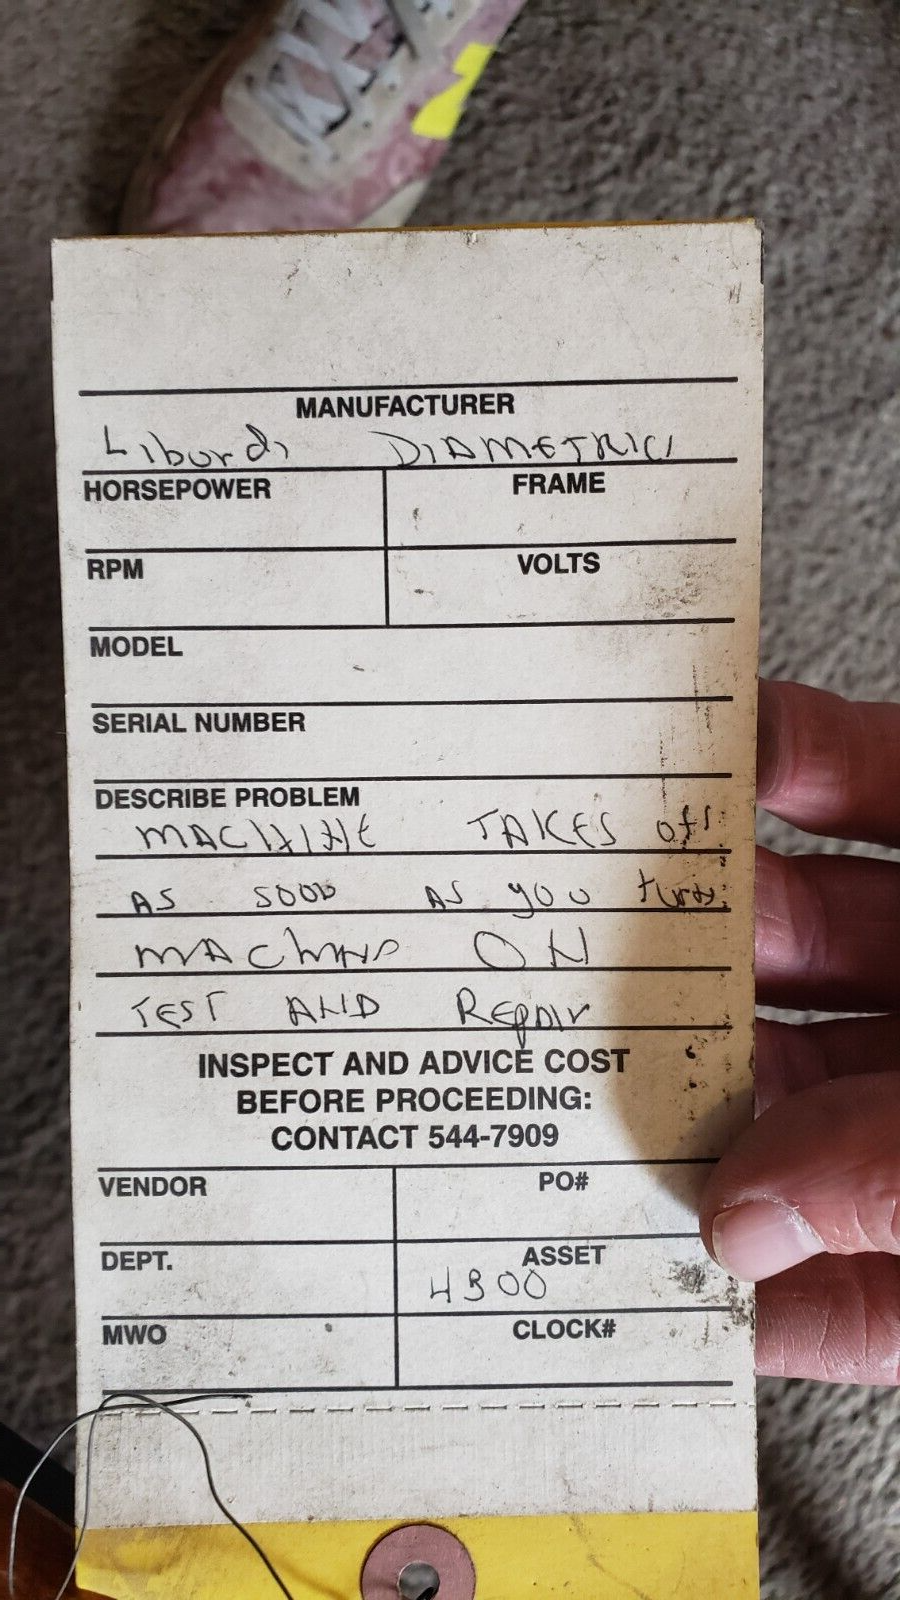 MANUFACTURER
Liburdi DIAMETRICS
HORSEPOWER FRAME
RPM VOLTS
MODEL
SERIAL NUMBER
DESCRIBE PROBLEM
MACHINE TAKES off
AS SOON AS you turn
MACHINE ON
TEST AND REPAIR
INSPECT AND ADVICE COST
BEFORE PROCEEDING:
CONTACT 544-7909
VENDOR PO#
DEPT. ASSET
4300
MWO CLOCK#